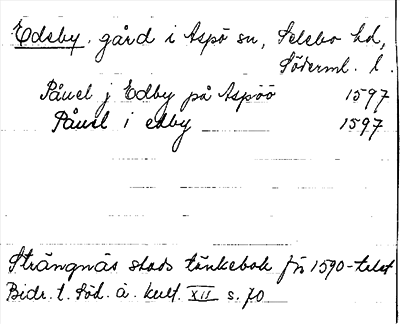 Edeby. gård i Aspö sn, Selebo hd,
Söderml. l.
Påuel j Edby på Aspöö 1597
Påuel i edby 1597
Strängnäs stads tänkebok för 1590-talet
Bidr. t. Söd. ä. kult. XII s. 70